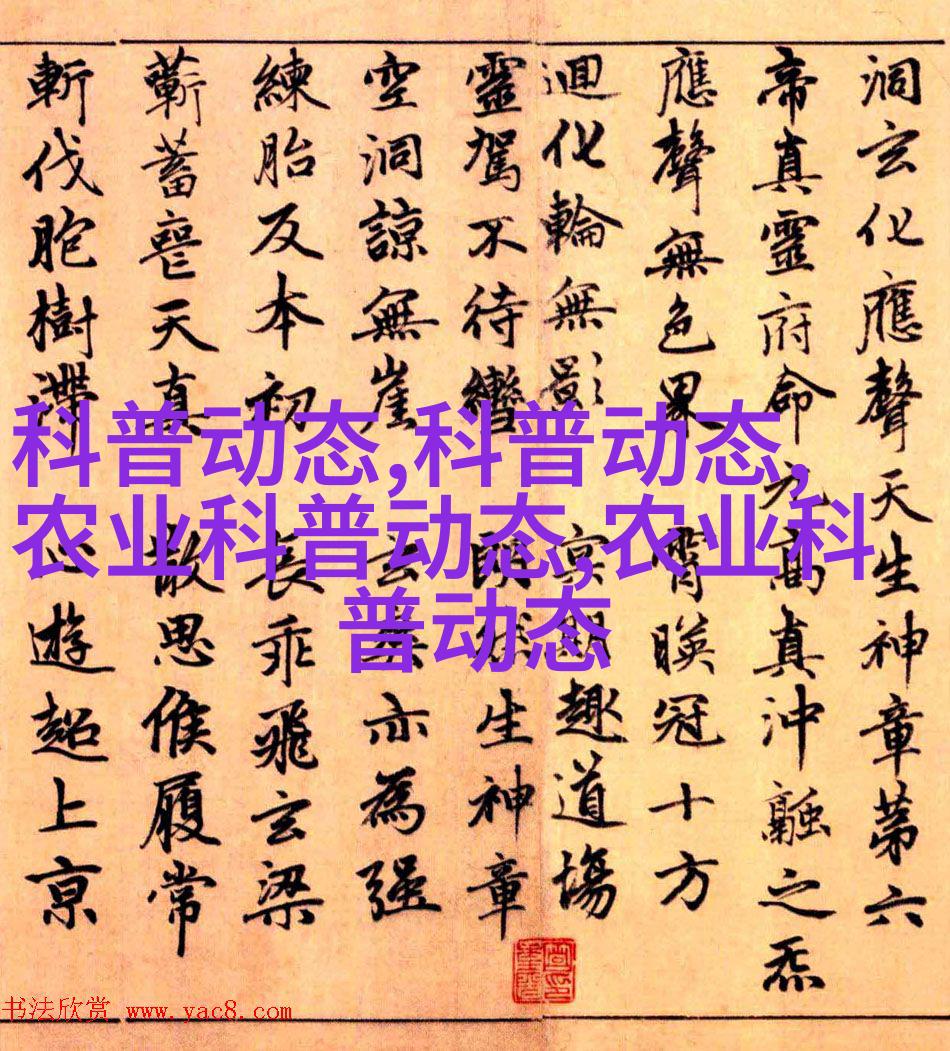 洞玄化應聲天生神章第六
帝真靈府命元高真沖融之炁
應聲無色界 霄暎冠十方
迴化輪無影 冥期趣道場
靈駕不待轡 朗然生神章
空洞諒無崖 玄亦為强
練胎反本初 長乖飛玄梁
蘄蓄喪天真 散思候履常
斬伐胞樹滯 心遊超上京
科普动态,科普动态,
农业科普动态,农业科
普动态
书法欣赏 www.yac8.com